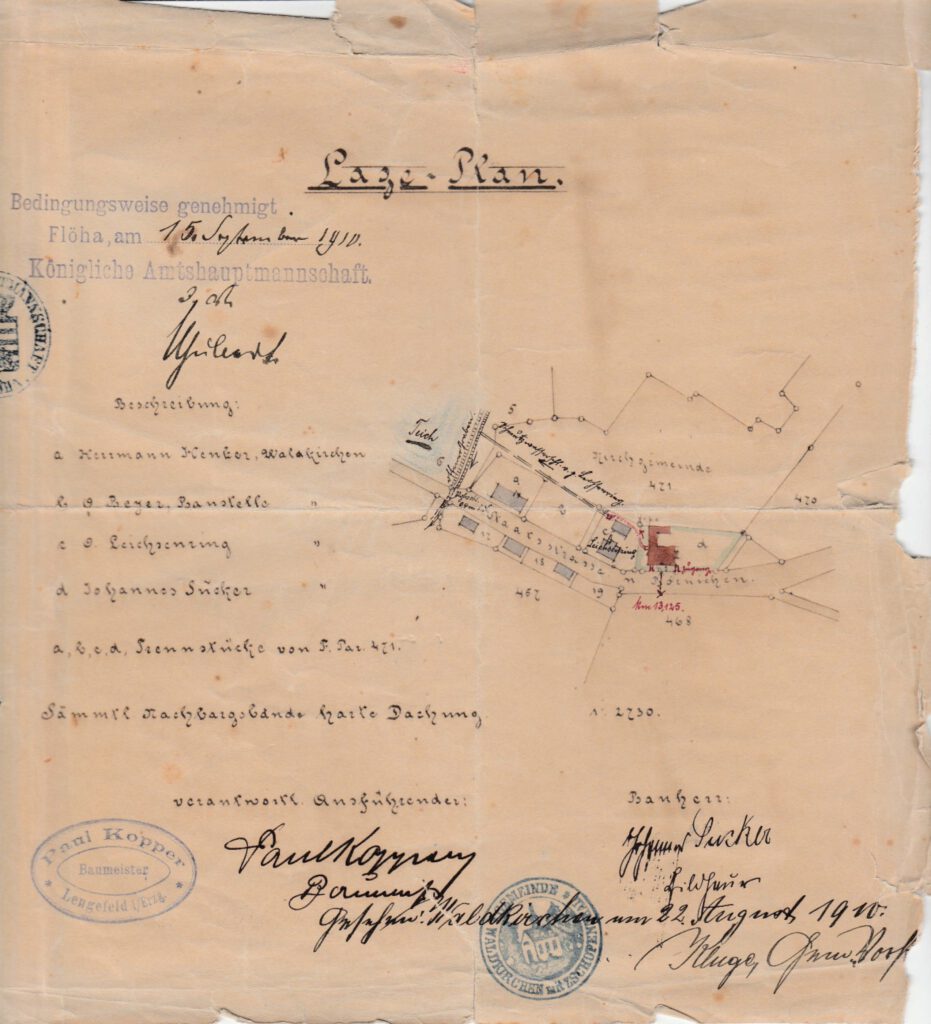 Lage-Plan.
Bedingungsweise genehmigt
Flöha, am 15. September 1910.
Königliche Amtshauptmannschaft.
Beschreibung:
a Herrmann Henker, Waldkirchen
b O Beyer, Baustelle "
c O. Leichsenring "
d Johannes Sucker "
a, b, c, d, Trennstücke von F. Par. 471.
Sämmtl Nachbargebäude harte Dachung
Teich
5
6
Kirchgemeinde
471
470
a
b
c
Leichsenring
d
Staatsstrasse
n Börnichen.
Zugang
Km 13,125.
17
18
19
467
468
1: 2730.
verantwortl. Ausführender:
Bauherr:
Paul Kopper
Baumeister
Lengefeld i/Erzg.
Paul Kopper
Baumstr
Johannes Sucker
Bildhauer
Gesehen: Waldkirchen am 22. August 1910.
GEMEINDE
WALDKIRCHEN b/ZSCHOPAU
Kluge, Gem. Vorst